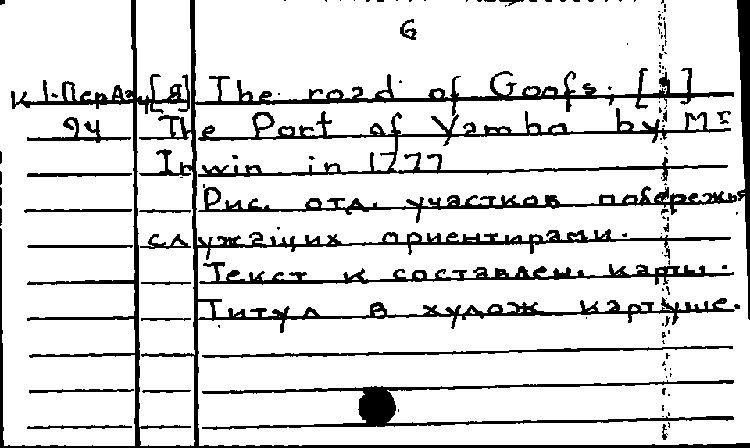 6
К 1-ПерАз/4 [Я] The road of Goofs; [я]
94 The Port of Yambo by Mr
Irwin in 1777
Рис. отд. участков побережья
служащих ориентирами.
Текст к составлен. карты.
Титул в худож картуше.